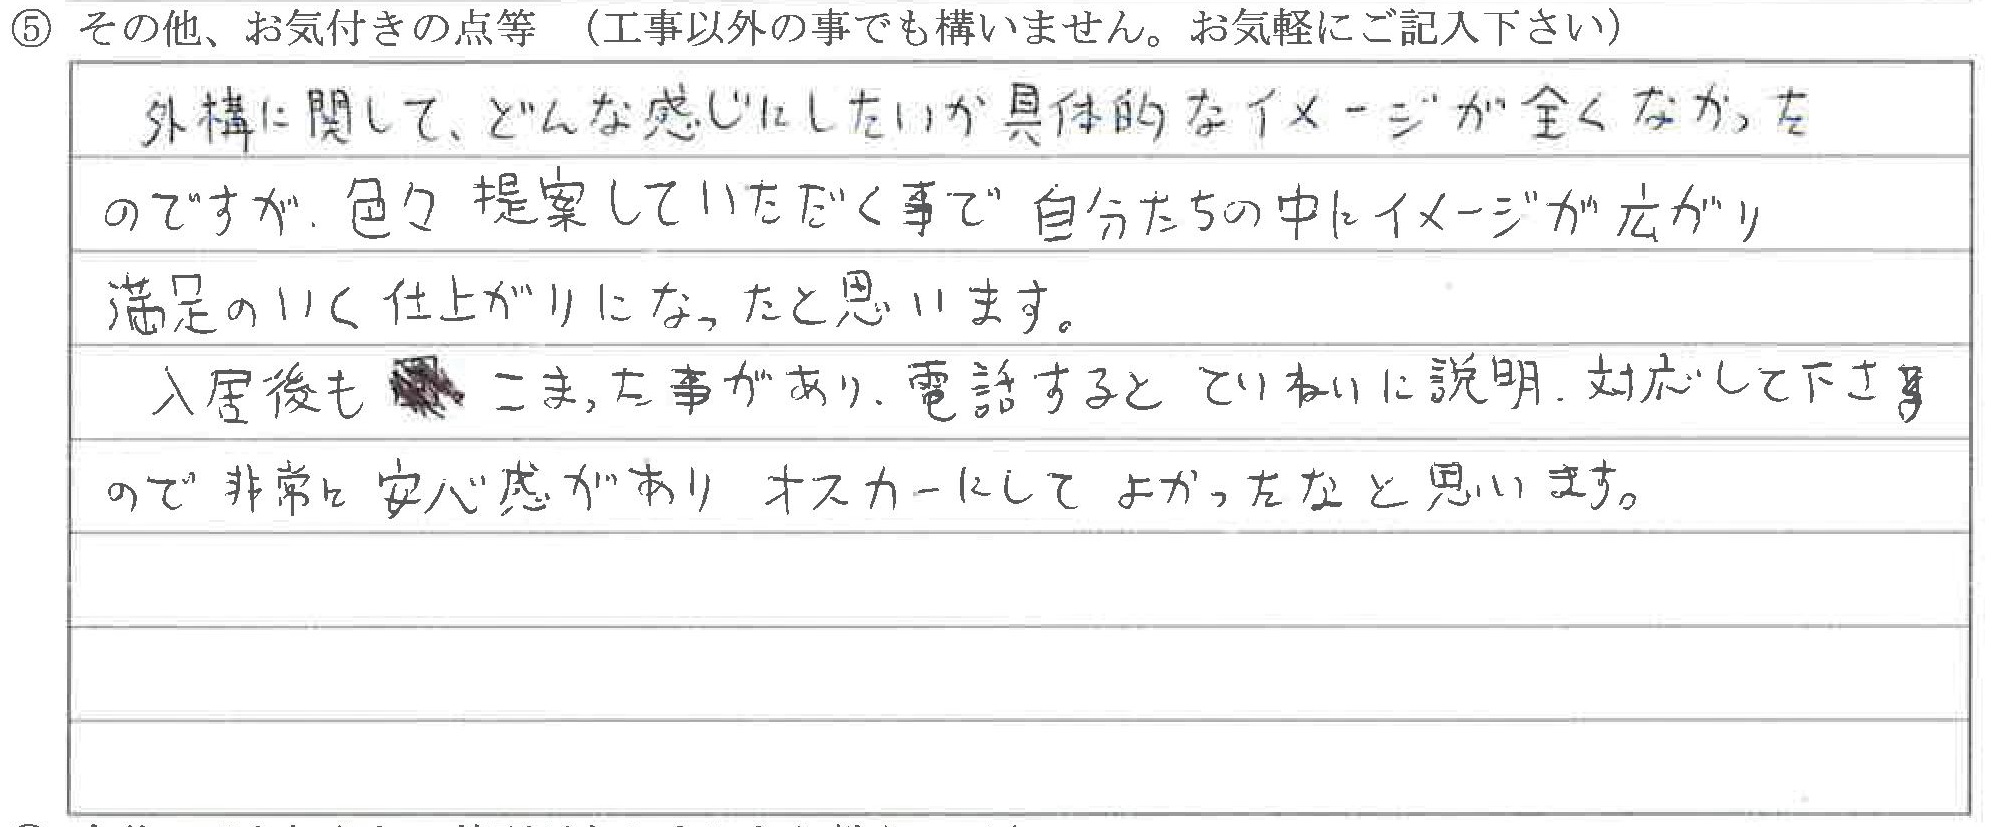 ⑤ その他、お気付きの点等 (工事以外の事でも構いません。お気軽にご記入下さい)
外構に関して、どんな感じにしたいか具体的なイメージが全くなかった
のですが、色々提案していただく事で自分たちの中にイメージが広がり
満足のいく仕上がりになったと思います。
入居後も こまった事があり、電話するとていねいに説明、対応して下さる
ので非常に安心感があり オスカーにしてよかったなと思います。